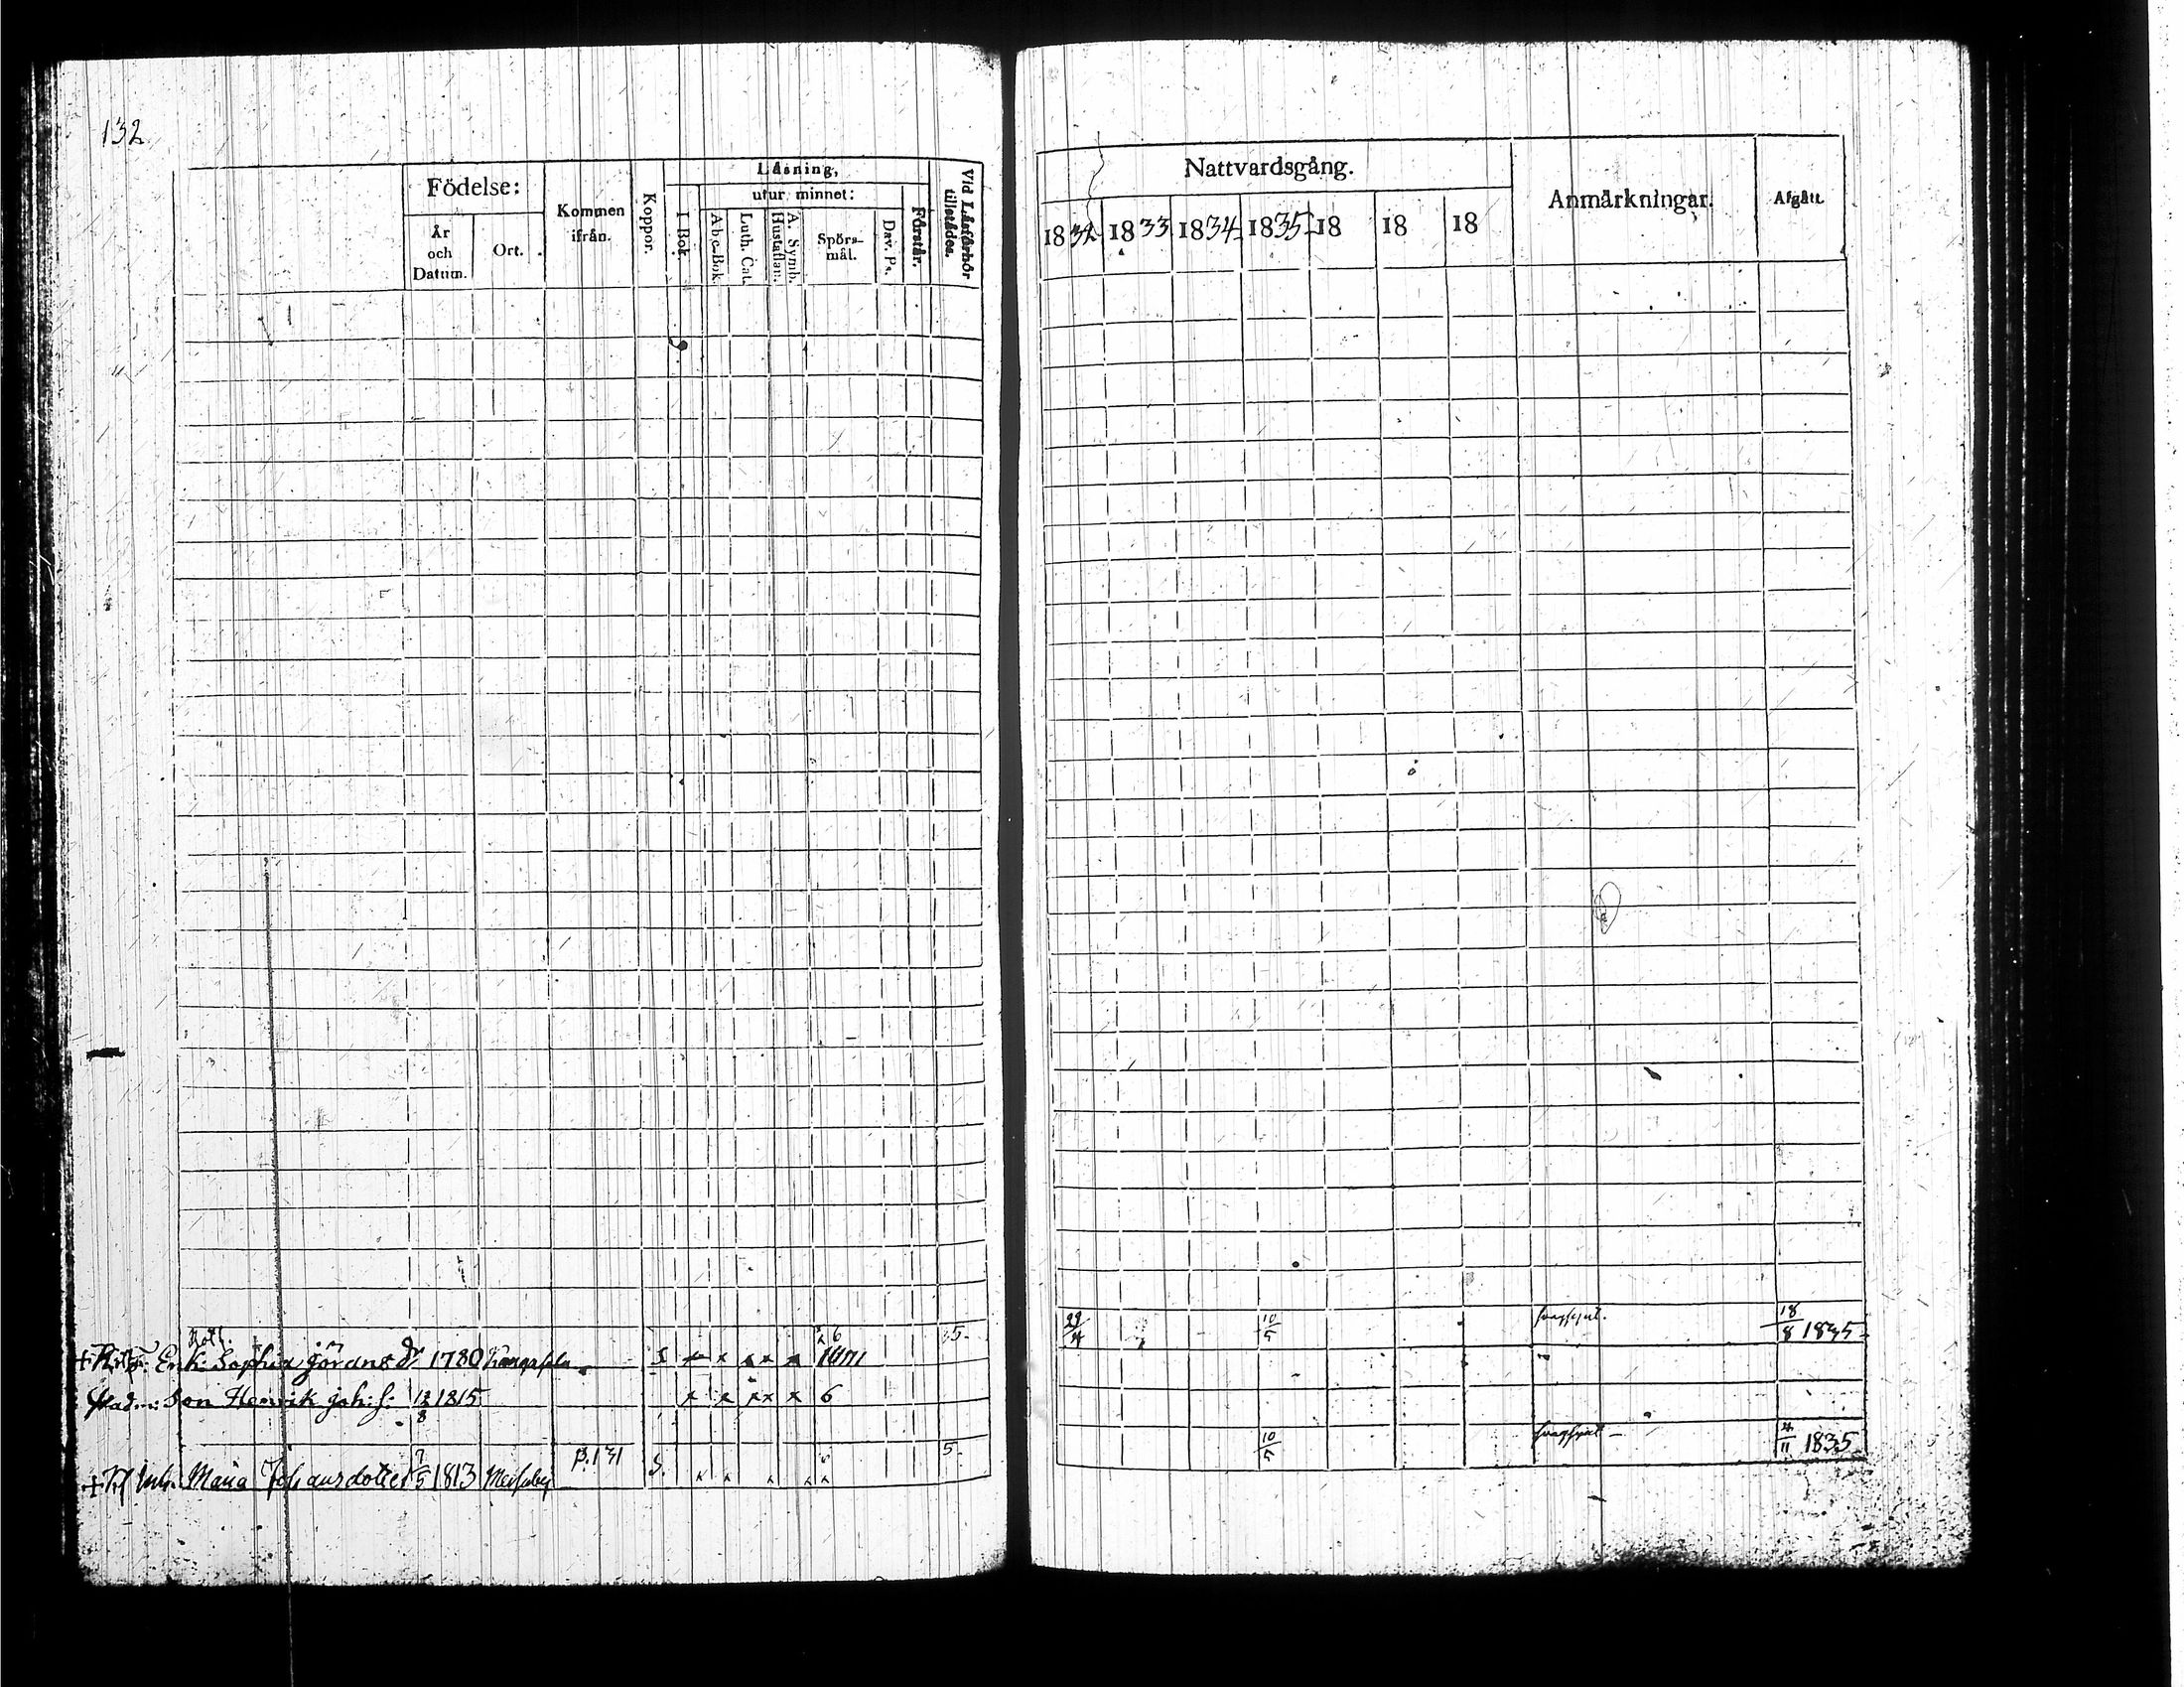 132
Födelse:
År och Datum.
Ort.
Kommen ifrån.
Koppor.
Läsning,
I Bok.
utur minnet:
Abc-Bok.
Luth. Cat.
Hustaflan.
A. Symb.
Spörs-mål.
Dav. Ps.
Förstår.
Vid Läsförhör tillstädes.
Nattvardsgång.
1832 1833 1834 1835 18 18 18
Anmärkningar.
Afgått.
Enk: Sophia Görans dr 1780 S 6 5 29/4 10/5 18/8 1835
Son Henrik Joh: s: 13/8 1815 6
Maria Johansdotter 7/5 1813 p. 131 S. 5 10/5 4/11 1835